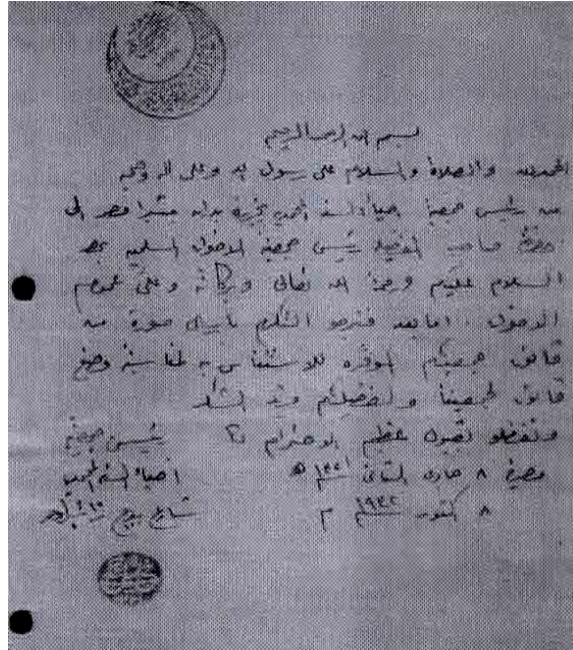 بسم الله الرحمن الرحيم
الحمد لله والصلاة والسلام على رسول الله وعلى آله وصحبه
من رئيس جمعية احياء السنة المحمدية بجزيرة بدران بشبرا مصر الى
حضرة صاحب الفضيلة رئيس جمعية الاخوان المسلمين بمصر
السلام عليكم ورحمة الله تعالى وبركاته وعلى عموم
الاخوان . اما بعد فنرجو التكرم بارسال صورة من
قانون جمعيتكم الموقرة للاستئناس به لمناسبة وضع
قانون لجمعيتنا ولفضيلتكم مزيد الشكر
وتفضلوا بقبول عظيم الاحترام
رئيس جمعية
احياء السنة المحمدية
مصر في ٨ جمادى الثانى ١٣٥١ هـ
٨ اكتوبر ١٩٣٢ م